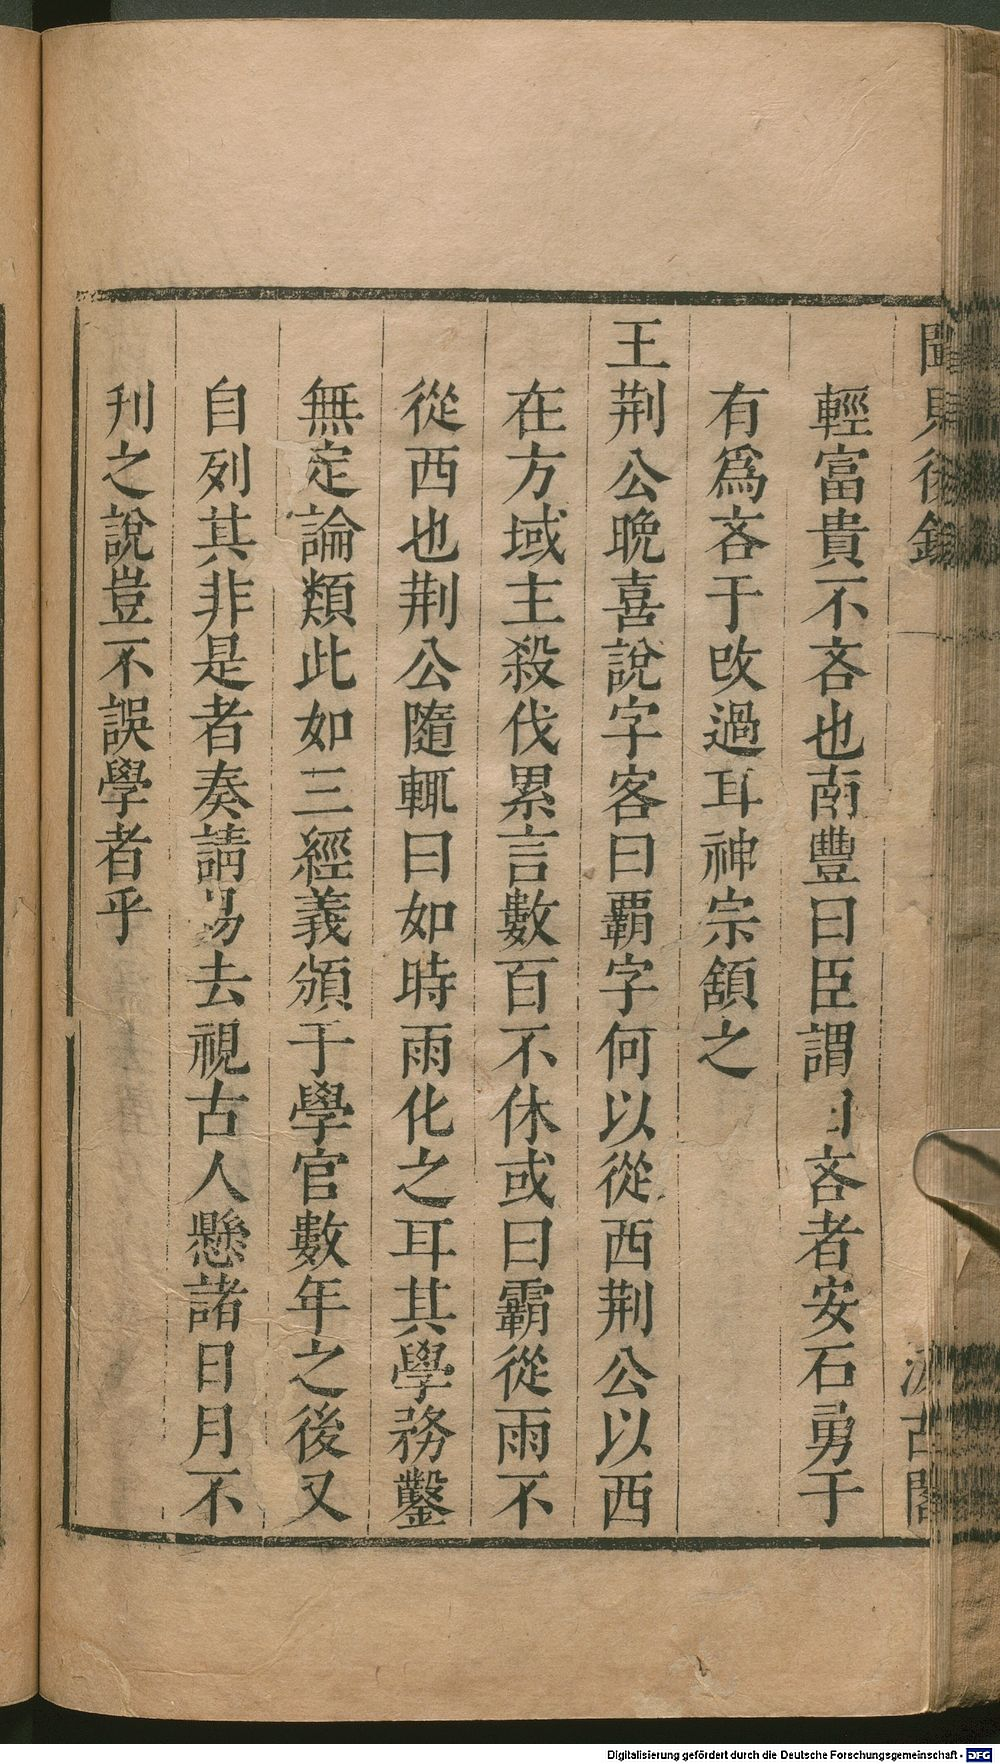 聞見後錄
汲古閣
輕富貴不吝也南豐曰臣謂吝者安石勇于
有爲吝于改過耳神宗頷之
王荆公晩喜説字客曰覇字何以從西荆公以西
在方域主殺伐累言數百不休或曰霸從雨不
從西也荆公隨輒曰如時雨化之耳其學務鑿
無定論類此如三經義頒于學官數年之後又
自列其非是者奏請易去視古人懸諸日月不
刋之說豈不誤學者乎
Digitalisierung gefördert durch die Deutsche Forschungsgemeinschaft - DFG